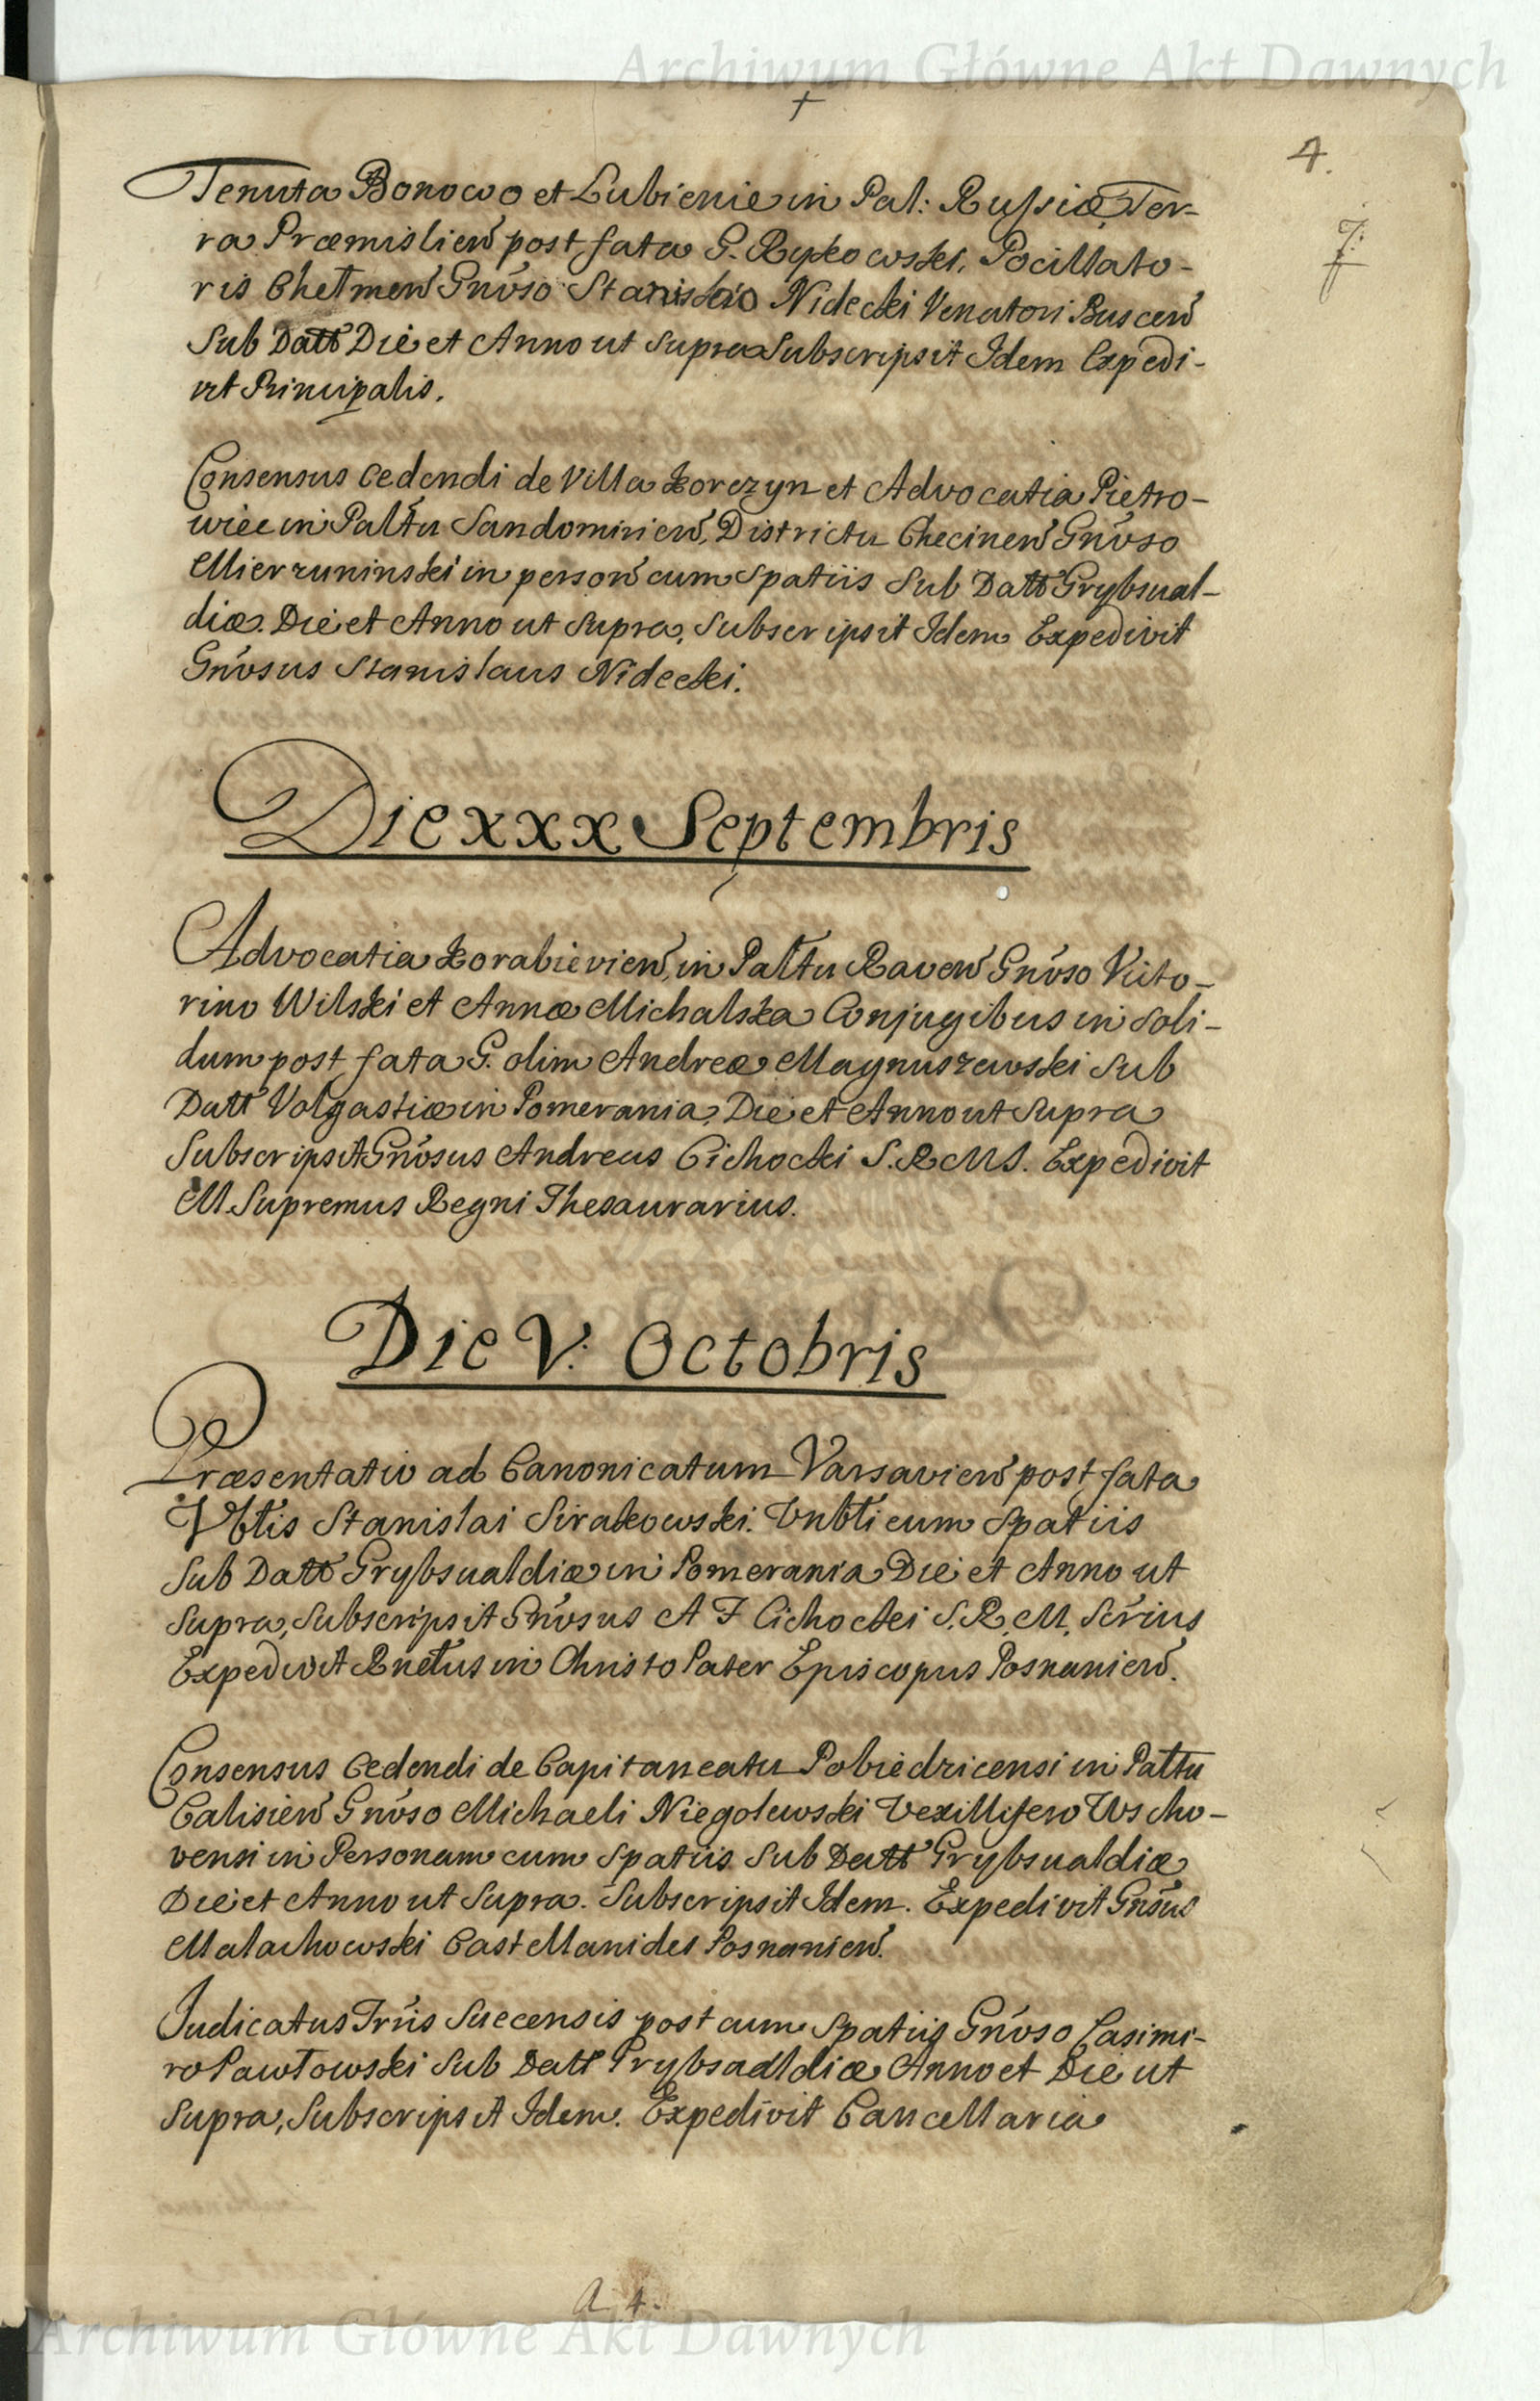 Archiwum Główne Akt Dawnych
4.
7.
Tenuta Bonowo et Lubienie in Pal: Russiæ, Ter-
ra Præmislien̄ post fata G. Rykowski, Pocillato-
ris Chelmen̄ Gn̄oso Stanislao Nidecki Venatori Buscen̄
Sub Datt Die et Anno ut supra Subscripsit Idem Expedi-
vit Principalis.
Consensus cedendi de Villa Korczyn et Advocatia Pietro-
wice in Pal̄tu Sandomirien̄, Districtu Checinen̄ Gn̄oso
Mierzuninski in person̄ cum spatiis Sub Datt Grybsual-
diæ. Die et Anno ut supra, Subscripsit Idem Expedivit
Gn̄osus Stanislaus Nidecki.
Die xxx Septembris
Advocatia Korabievien̄, in Pal̄tu Raven̄ Gn̄oso Victo-
rino Wilski et Annæ Michalska Conjugibus in soli-
dum post fata G. olim Andreæ Magnuszewski Sub
Datt Volgastiæ in Pomerania, Die et Anno ut Supra
Subscripsit Gn̄osus Andreas Cichocki S.R.M.S. Expedivit
M. Supremus Regni Thesaurarius.
Die V. Octobris
Præsentatio ad Canonicatum Varsavien̄ post fata
Vbl̄is Stanislai Sirakowski. Vnbl̄i cum Spatiis
Sub Datt Grybsualdiæ in Pomerania Die et Anno ut
Supra, Subscripsit Gn̄osus A F Cichocki S.R.M. Scr̄ius
Expedivit Rnd̄us in Christo Pater Episcopus Posnanien̄.
Consensus cedendi de Capitaneatu Pobiedricensi in Pal̄tu
Calisien̄ Gn̄oso Michaeli Niegolewski Vexillifero Wscho-
vensi in Personam cum Spatiis Sub Datt Grybsualdiæ
Die et Anno ut Supra. Subscripsit Idem. Expedivit Gn̄sus
Malachowski Castellanides Posnanien̄.
Judicatus Trr̄is Succensis post cum Spatiis Gn̄oso Casimi-
ro Pawłowski Sub Datt Grybsadldiæ Anno et Die ut
Supra, Subscripsit Idem. Expedivit Cancellaria
A 4.
Archiwum Główne Akt Dawnych